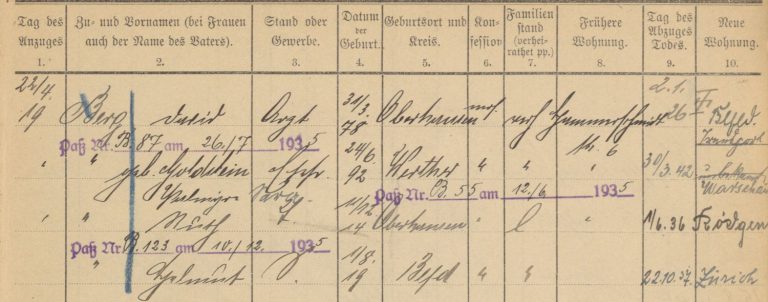 Tag des Anzuges Zu- und Vornamen (bei Frauen auch der Name des Vaters). Stand oder Gewerbe. Datum der Geburt. Geburtsort und Kreis. Konfession Familienstand (verheirathet pp.) Frühere Wohnung. Tag des Abzuges Todes. Neue Wohnung.
1. 2. 3. 4. 5. 6. 7. 8. 9. 10.
22/4. 19 Berg David Arzt 31/3. 78 Oberhausen mos. verh Hammerschmidt 2.1. 26
Paß Nr. B. 87 am 26./7 1935 Transport
" " geb. Goldstein 24/6 92 Werther " " " 30/3.42 Warschau
Paß Nr. B. 55 am 12./6 1935
" " Ruth 14 Oberhausen l " 1/6.36 Rödgen
Paß Nr. B. 123 am 10./12. 1935
" Helmut 1/8. 19 Bfld " " 22.10.37. Zürich